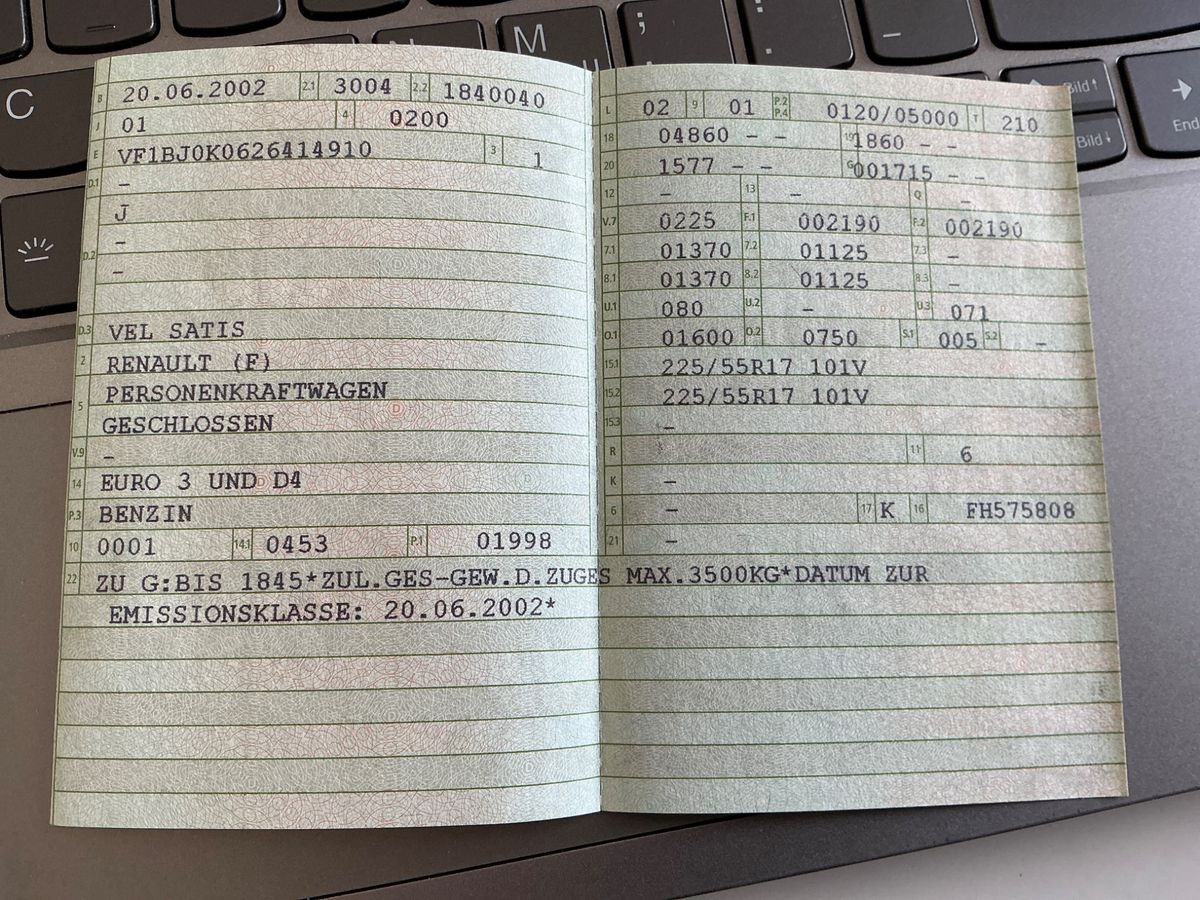 B 20.06.2002 2.1 3004 2.2 1840040
J 01 4 0200
E VF1BJ0K0626414910 3 1
D.1 –
J
D.2 –
–
D.3 VEL SATIS
2 RENAULT (F)
5 PERSONENKRAFTWAGEN
GESCHLOSSEN
V.9 –
14 EURO 3 UND D4
P.3 BENZIN
10 0001 14.1 0453 P.1 01998
L 02 9 01 P.2 P.4 0120/05000 T 210
18 04860 – – 19 1860 – –
20 1577 – – G 001715 – –
12 – 13 – Q –
V.7 0225 F.1 002190 F.2 002190
7.1 01370 7.2 01125 7.3 –
8.1 01370 8.2 01125 8.3 –
U.1 080 U.2 – U.3 071
O.1 01600 O.2 0750 S.1 005 S.2 –
15.1 225/55R17 101V
15.2 225/55R17 101V
15.3 –
R 11 6
K –
6 – 17 K 16 FH575808
21 –
22 ZU G:BIS 1845*ZUL.GES-GEW.D.ZUGES MAX.3500KG*DATUM ZUR
EMISSIONSKLASSE: 20.06.2002*
C
M
;
:
–
Bild↑
Bild↓
→
End